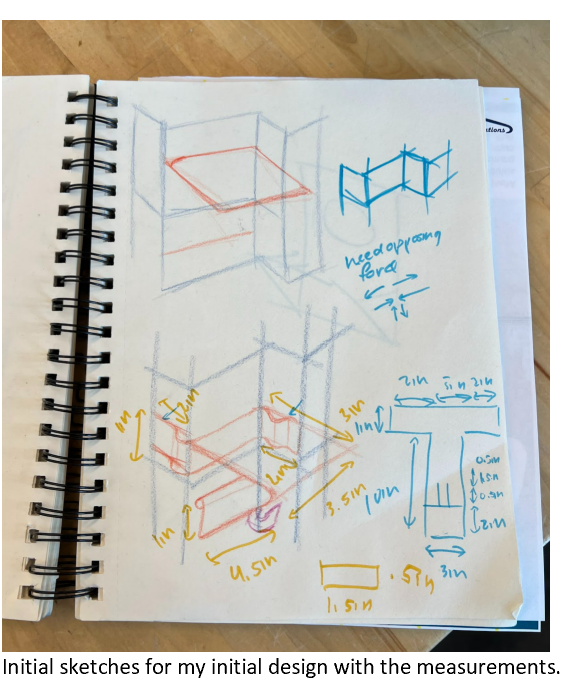 utions
need opposing
force
2in
1in
2in
1in
2in
3in
1in
0.5in
2in
10in
0.5in
2in
1in
3.5in
4.5in
3in
.5in
1.5in
Initial sketches for my initial design with the measurements.